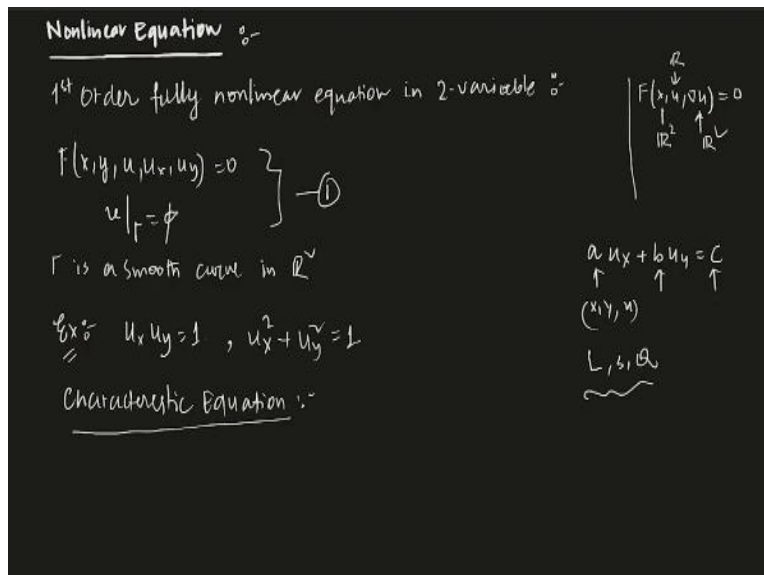 Nonlinear Equation :-
1st Order fully nonlinear equation in 2-variable :-
F(x,y,u,ux,uy)=0
u|Γ=φ
} —①
Γ is a smooth curve in ℝ²
Ex:- ux uy=1 , ux²+uy²=1
Characterstic Equation :-
ℝ
↓
F(x,u,∇u)=0
ℝ² ↑ ℝ²
a ux + b uy = c
↑ ↑ ↑
(x,y,u)
L, S, Q